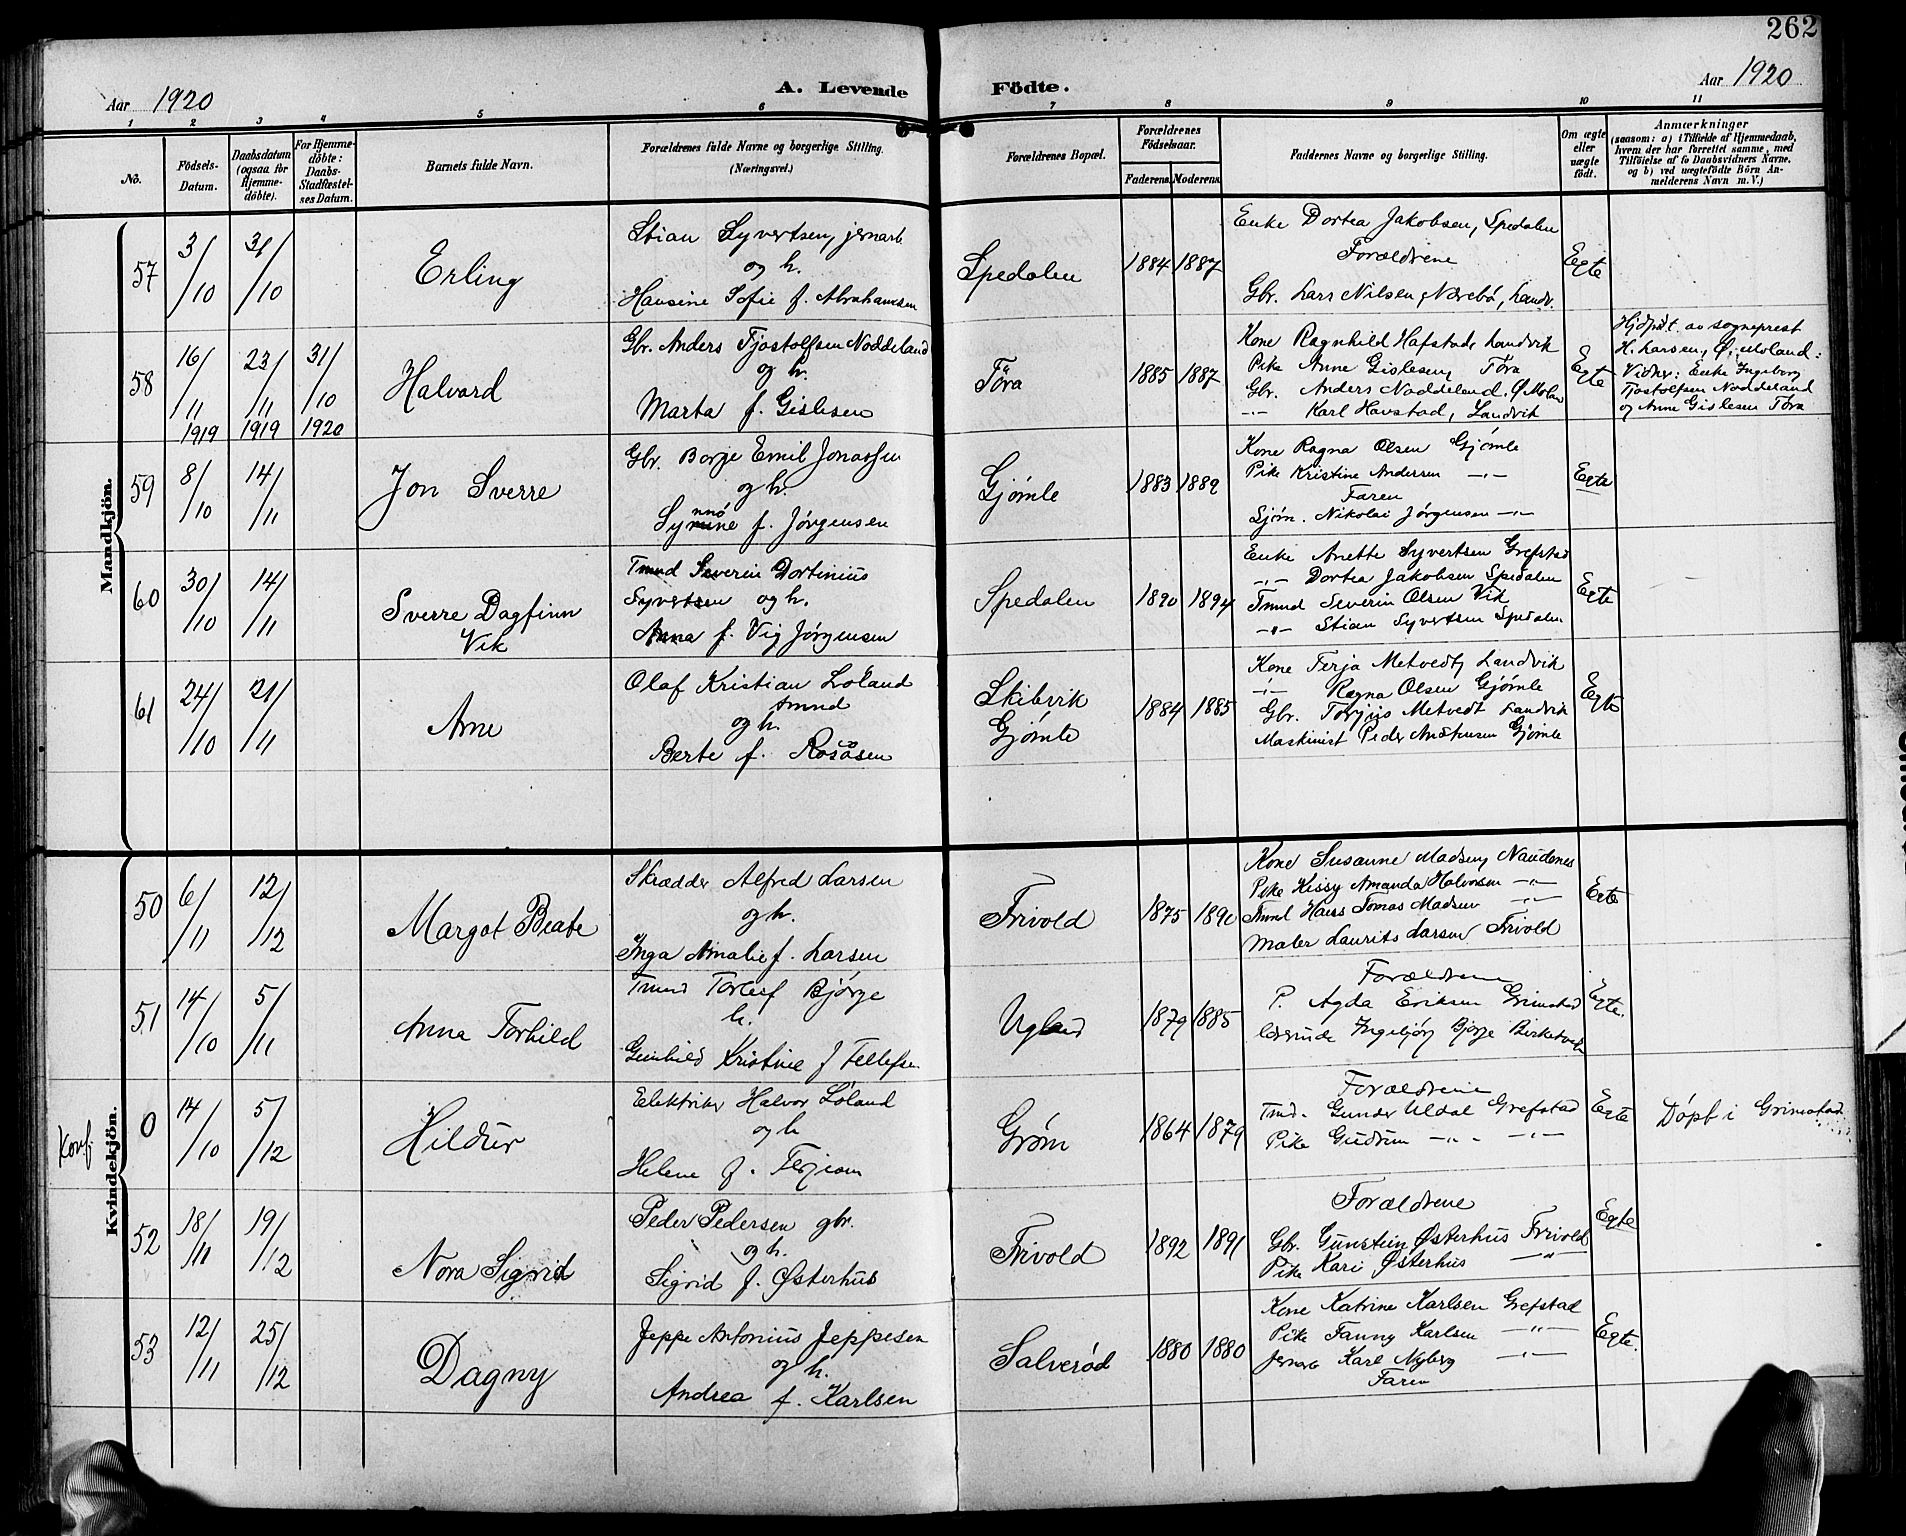 262
Aar 1920
A. Levende Födte.
Aar 1920
1 2 3 4 5 6 7 8 9 10 11
No.
Födsels-Datum.
Daabsdatum (ogsaa for Hjemme-döbte).
For Hjemme-döbte: Daabs-Stadfæstel-ses Datum.
Barnets fulde Navn.
Forældrenes fulde Navne og borgerlige Stilling. (Næringsvei.)
Forældrenes Bopæl.
Forældrenes Födselsaar.
Faderens. Moderens.
Faddernes Navne og borgerlige Stilling.
Om ægte eller uægte födt.
Anmærkninger
(saasom: a) i Tilfælde af Hjemmedaab, hvem der har forrettet samme, med Tilföielse af to Daabsvidners Navne. og b) ved uægtefödte Börn An-melderens Navn m. V.)
Mandkjön.
57
3/10
31/10
Erling
Stian Syvertsen, jernarb
og h.
Hansine Sofie f. Abrahamsen
Spedalen
1884 1887
Enke Dortea Jakobsen, Spedalen
Forældrene
Gbr. Lars Nilsen, Nærebö, Landv.
Egte
58
16/11 1919
23/11 1919
31/10 1920
Halvard
Gbr. Anders Tjostolfsen Noddeland
og h.
Marta f. Gislesen
Töra
1885 1887
Kone Ragnhild Hafstad Landvik
Pike Anne Gislesen, Töra
Gbr. Anders Noddeland. Ø. Molan
-"- Karl Havstad, Landvik
Egte
Hjdpt. av sogneprest
H. Larsen, Ø. Moland:
Vidner: Enke Ingeborg
Tjostolfsen Noddeland
og Anne Gislesen Töra
59
8/10
14/11
Jon Sverre
Gbr. Borge Emil Jonassen
og h.
Synnø f. Jörgensen
Gjømle
1883 1889
Kone Ragna Olsen Gjømle
Pike Kristine Andersen -"-
Faren
Sjøm. Nikolai Jørgensen -"-
Egte
60
30/10
14/11
Sverre Dagfinn
Vik
Tmnd Severin Dortinius
Syvertsen og h.
Anna f. Vig Jørgensen
Spedalen
1890 1894
Enke Anette Syvertsen Grefstad
-"- Dortea Jakobsen Spedalen
Tmnd Severin Olsen Vik
-"- Stian Syvertsen Spedalen
Egte
61
24/10
21/11
Arne
Olaf Kristian Löland
tmnd
og h.
Berte f. Rosåsen
Skibvik
Gjømle
1884 1885
Kone Terja Metvedt, Landvik
-"- Ragna Olsen Gjømle
Gbr. Torjus Metvedt Landvik
Maskinist Peder Andersen Gjømle
Egte
Kvindekjön.
50
6/11
12/12
Margot Beate
Skrædder Alfred Larsen
og h.
Inga Amalie f. Larsen
Frivold
1875 1890
Kone Susanne Madsen, Naudenes
Pike Kissy Amanda Halvorsen -"-
Tmnd Hans Tomas Madsen -"-
Maler Laurits Larsen Frivold
Egte
51
14/10
5/11
Anna Torhild
Tmnd Torleif Bjørge
h.
Gunhild Kristine f Tellefsen
Ugland
1879 1885
Forældrene
P. Agda Eriksen Grimstad
Lærerinde Ingebjörg Bjørge Birketvedt
Egte.
Konf.
0
14/10
5/12
Hildur
Elektriker Halvor Löland
og h
Helene f. Terjesen
Grøm
1864 1879
Forældrene
Tmd. Gunder Uldal Grefstad
Pike Gudrun -"- -"-
Egte
Döpt i Grimstad
52
18/11
19/12
Nora Sigrid
Peder Pedersen gbr.
og h.
Sigrid f. Østerhus
Frivold
1892 1891
Forældrene
Gbr. Gunstein Østerhus Frivold
Pike Kari Østerhus -"-
Egte
53
12/11
25/12
Dagny
Jeppe Antonius Jeppesen
og h.
Andrea f. Karlsen
Salverød
1880 1880
Kone Katrine Karlsen Grefstad
Pike Fanny Karlsen -"-
Jernarb Karl Nyberg -"-
Faren
Egte.